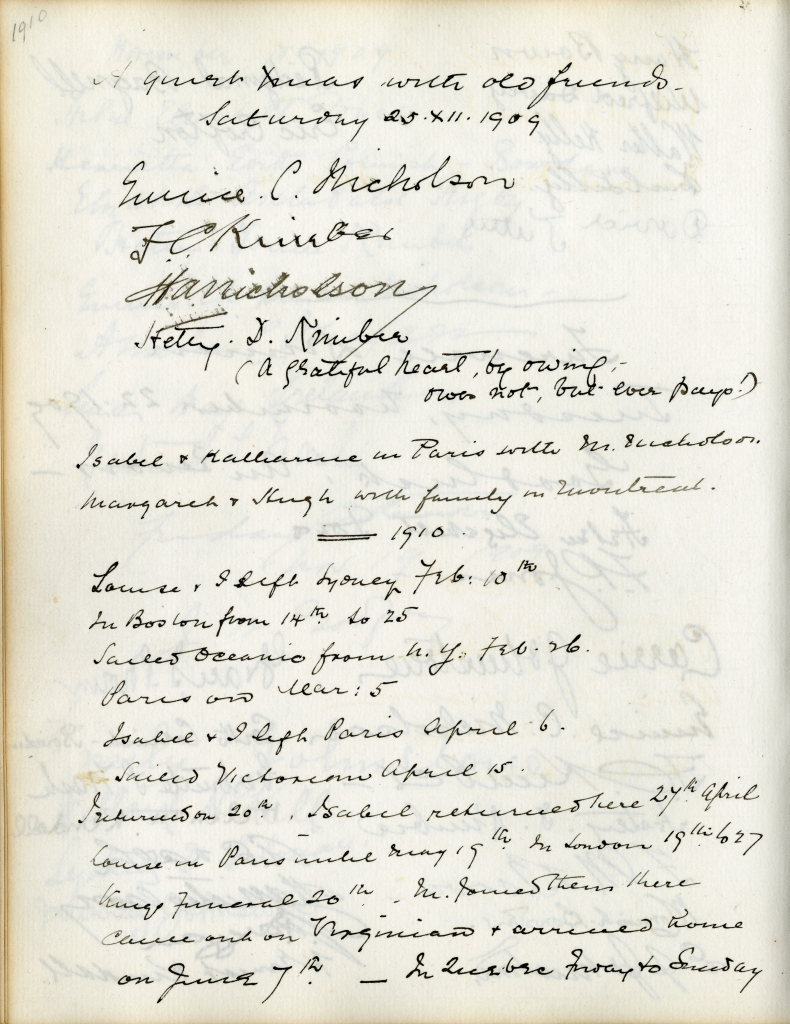 1910
A quiet Xmas with old friends -
Saturday 25.XII.1909
Eunice. C. Nicholson
F C Kimber
H A Nicholson
Hetty. D. Kimber
(A grateful heart, by owing,
owes not, but ever pays!)
Isabel & Katharine in Paris with M. Nicholson.
Margaret & Hugh with family in Montreal.
1910.
Louise & I left Sydney Feb: 10th
In Boston from 14th to 25
Sailed Oceanic from N.Y. Feb. 26.
Paris on Mar: 5
Isabel & I left Paris April 6.
Sailed Victorian April 15.
I returned on 20th. Isabel returned here 27th April
Louise in Paris until May 19th. In London 19th to 27
Kings Funeral 20th - M. Joined them there
Came out on Virginian & arrived home
on June 7th - In Quebec Friday to Sunday